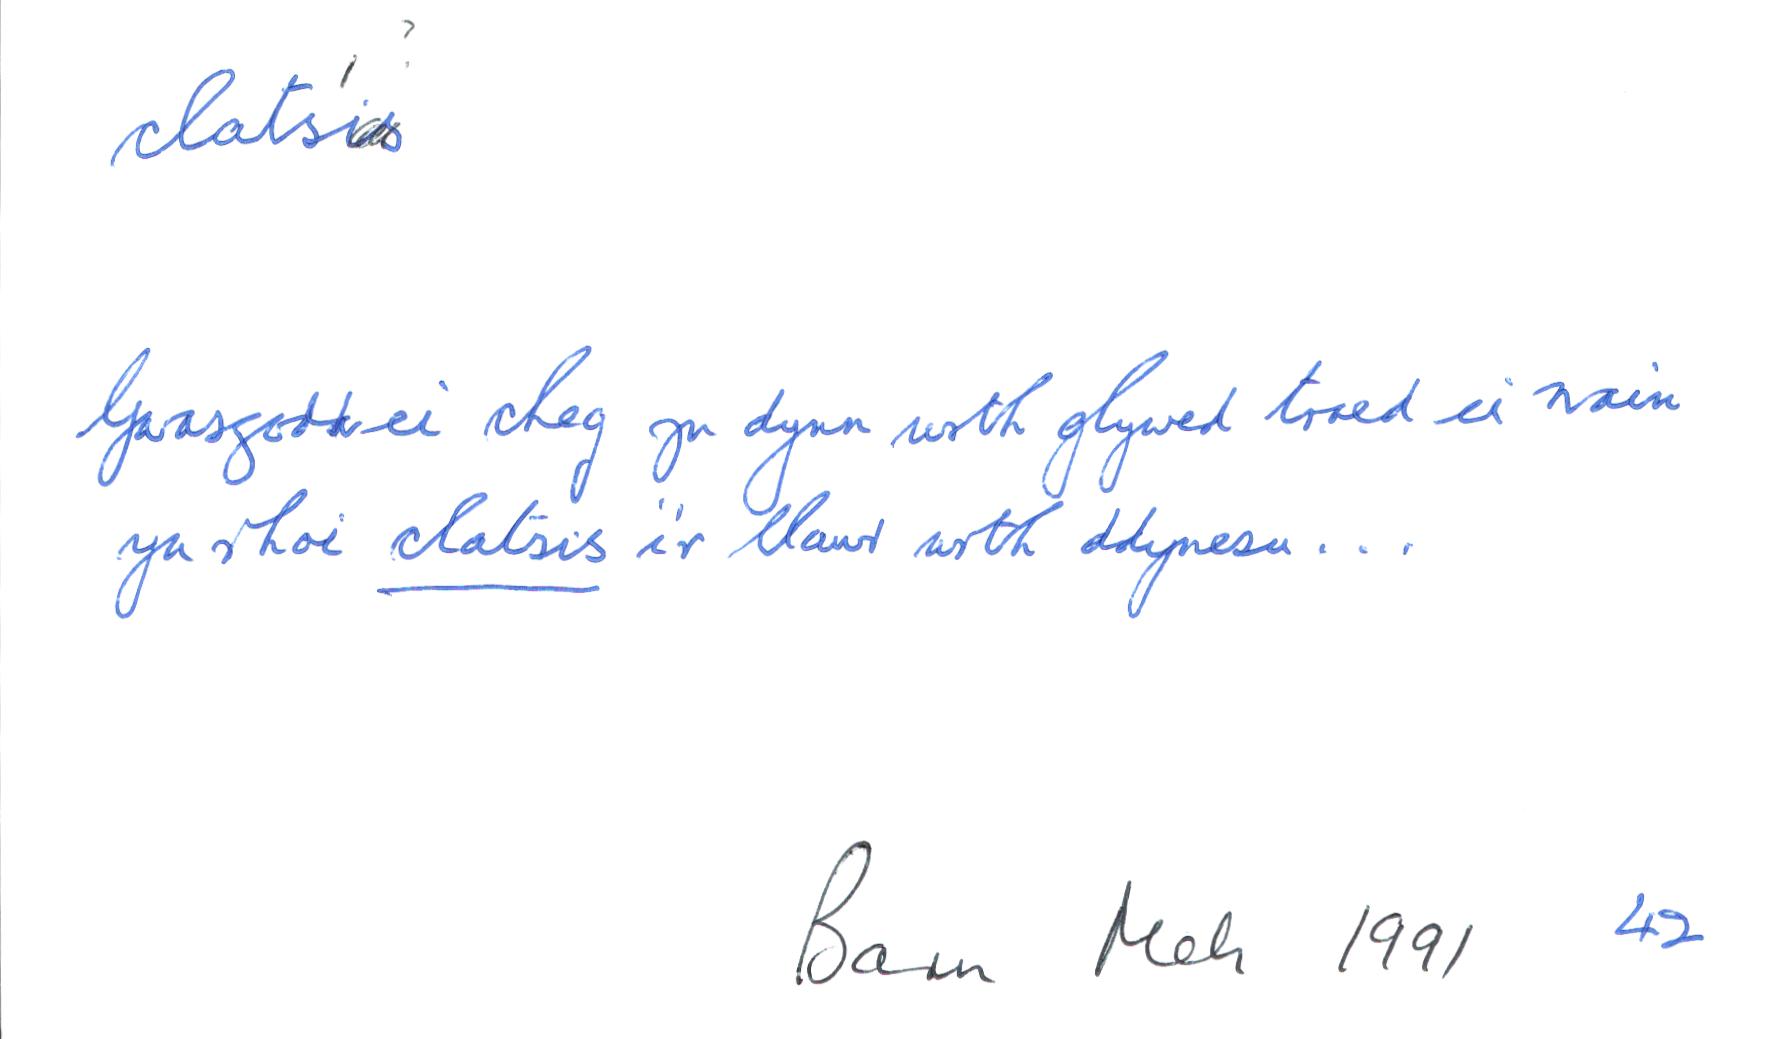 ?
clatsis
Gwasgodd ei cheg yn dynn wrth glywed traed ei nain
yn rhoi clatsis i'r llawr wrth ddynesu...
Barn Meh 1991 42